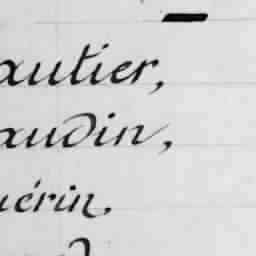 autier,
audin,
uérin.